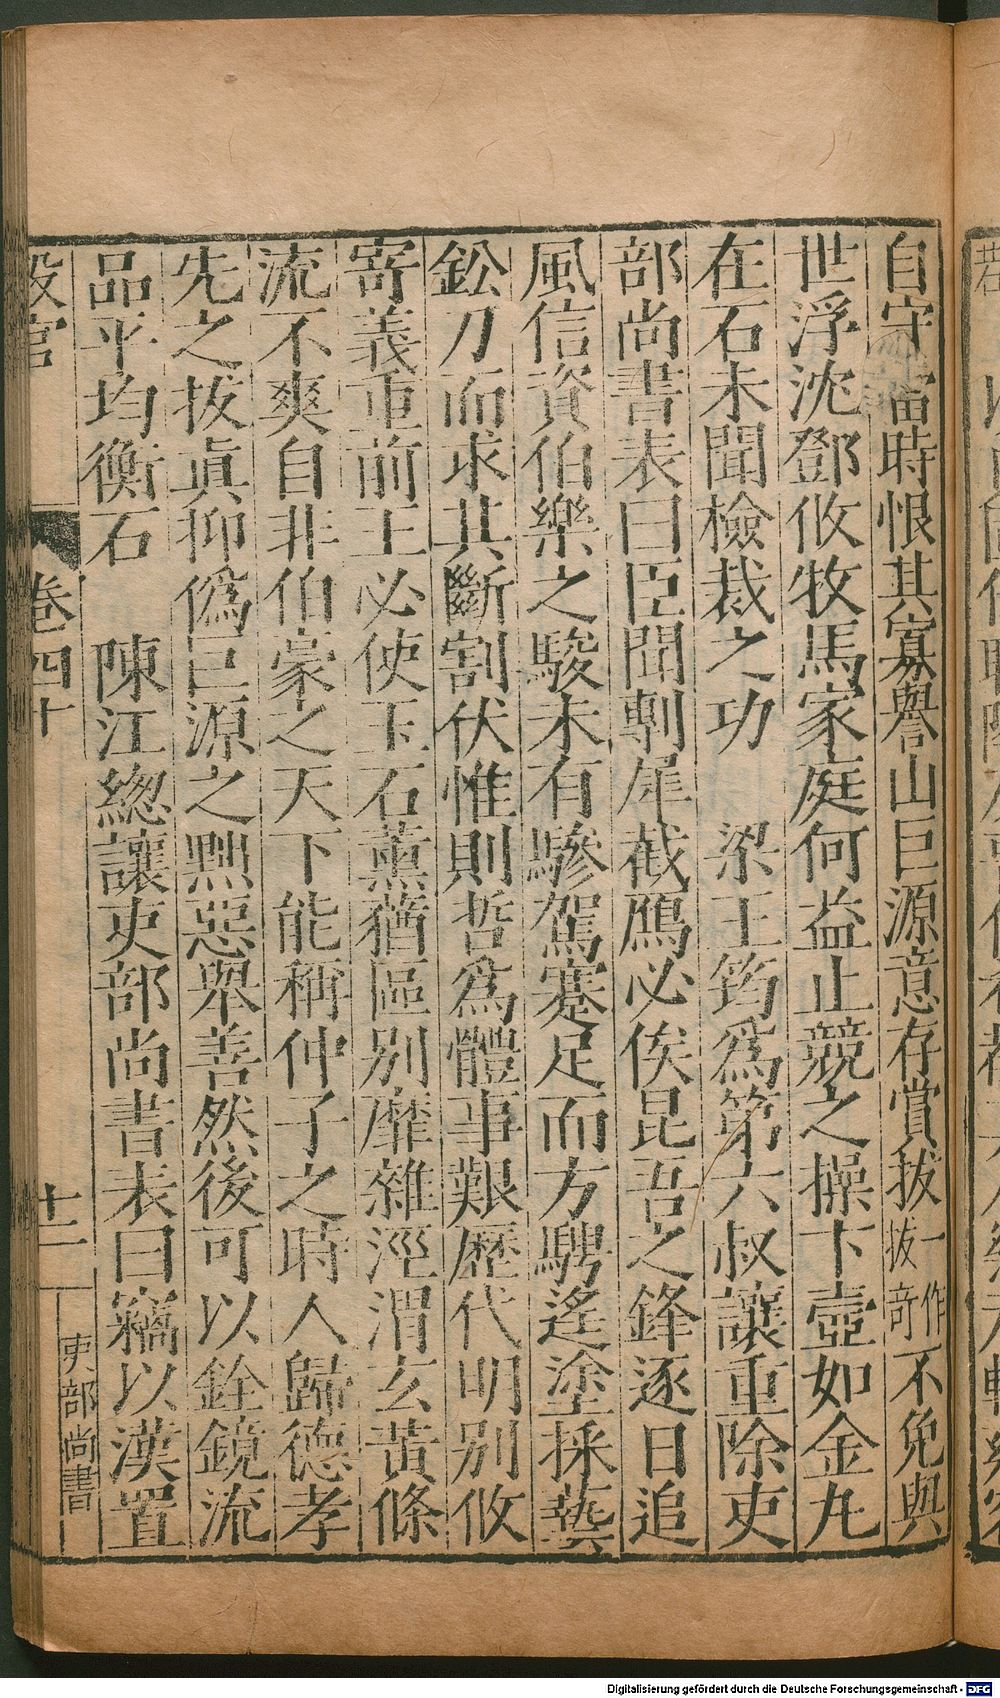 自守當時恨其寡譽山巨源意存賞拔一作拔奇不免與
世浮沈鄧攸牧馬家庭何益止競之操卞壺如金丸
在石未聞檢裁之功 梁王筠爲第六叔讓重除吏
部尚書表曰臣聞剸犀截鴈必俟昆吾之鋒逐日追
風信資伯樂之駿未有驂駕蹇足而方騁遙塗採藝
鈆刀而求其斷割伏惟則哲爲體事艱歷代明別攸
寄義重前王必使玉石薰蕕區別靡雜涇渭玄黃條
流不爽自非伯豪之天下能稱仲子之時人歸德孝
先之拔眞抑僞巨源之黜惡舉善然後可以銓鏡流
品平均衡石 陳江緫讓吏部尚書表曰竊以漢置
設官 卷四十 十二 吏部尚書
Digitalisierung gefördert durch die Deutsche Forschungsgemeinschaft - DFG